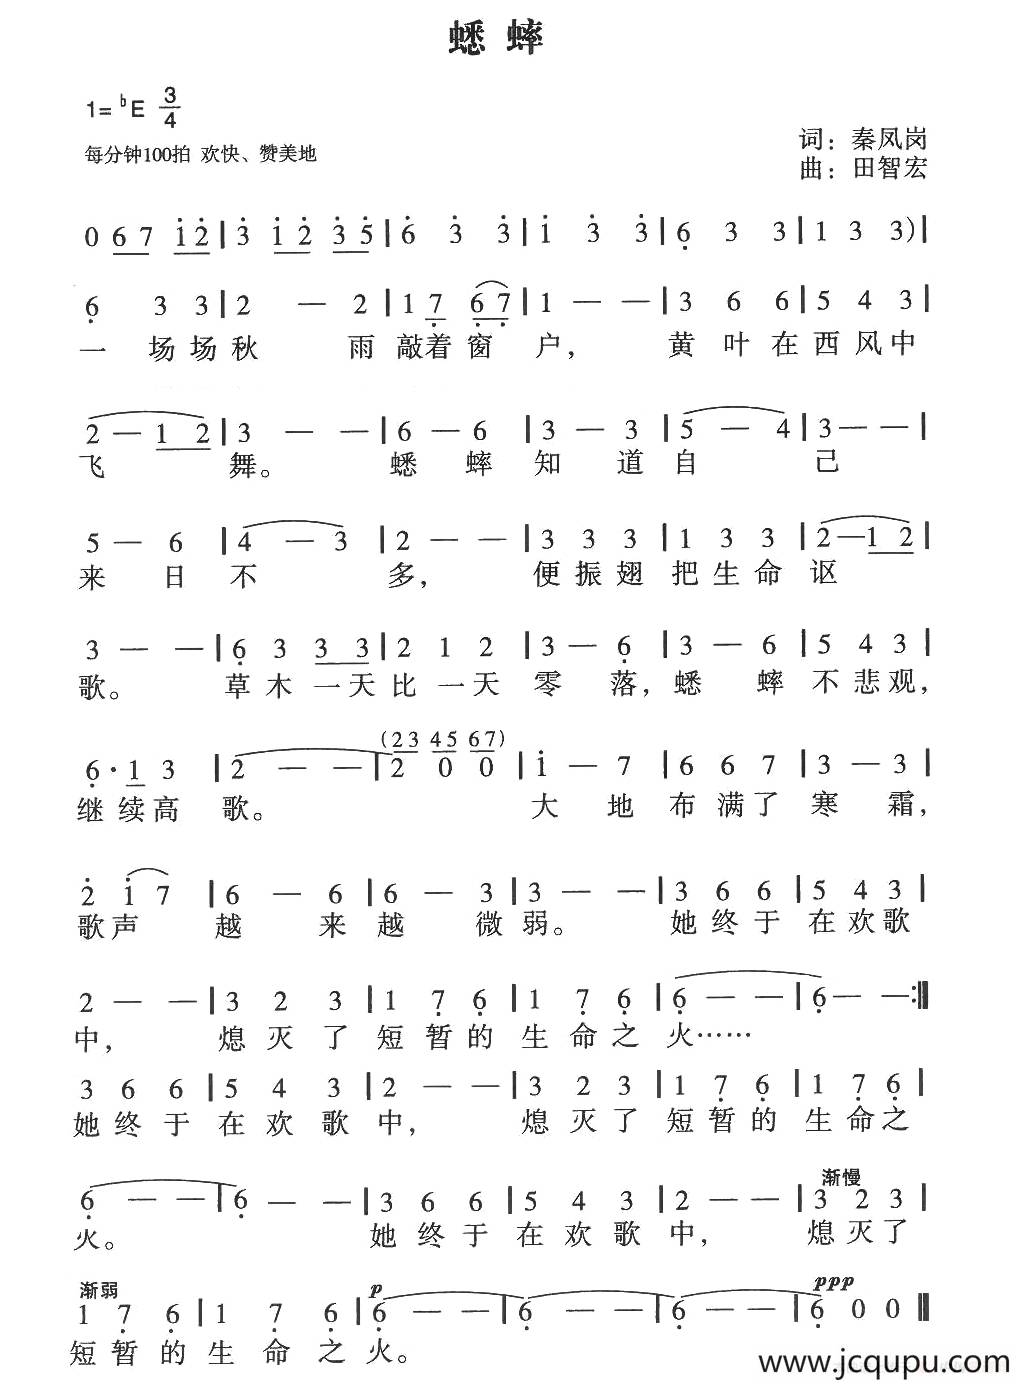 蟋 蟀
1= ♭E 3/4
每分钟100拍 欢快、赞美地
词：秦凤岗
曲：田智宏
0 6 7 i 2 | 3 i 2 3 5 | 6 3 3 | i 3 3 | 6 3 3 | 1 3 3 ) |
6 3 3 | 2 — 2 | 1 7 6 7 | 1 — — | 3 6 6 | 5 4 3 |
一 场 场 秋 雨 敲 着 窗 户， 黄 叶 在 西 风 中
2 — 1 2 | 3 — — | 6 — 6 | 3 — 3 | 5 — 4 | 3 — — |
飞 舞。 蟋 蟀 知 道 自 己
5 — 6 | 4 — 3 | 2 — — | 3 3 3 | 1 3 3 | 2 — 1 2 |
来 日 不 多， 便 振 翅 把 生 命 讴
3 — — | 6 3 3 3 | 2 1 2 | 3 — 6 | 3 — 6 | 5 4 3 |
歌。 草 木 一 天 比 一 天 零 落， 蟋 蟀 不 悲 观，
(2 3 4 5 6 7)
6 · 1 3 | 2 — — | 2 0 0 | i — 7 | 6 6 7 | 3 — 3 |
继 续 高 歌。 大 地 布 满 了 寒 霜，
2 i 7 | 6 — 6 | 6 — 3 | 3 — — | 3 6 6 | 5 4 3 |
歌 声 越 来 越 微 弱。 她 终 于 在 欢 歌
2 — — | 3 2 3 | 1 7 6 | 1 7 6 | 6 — — | 6 — — :‖
中， 熄 灭 了 短 暂 的 生 命 之 火……
3 6 6 | 5 4 3 | 2 — — | 3 2 3 | 1 7 6 | 1 7 6 |
她 终 于 在 欢 歌 中， 熄 灭 了 短 暂 的 生 命 之
渐慢
6 — — | 6 — — | 3 6 6 | 5 4 3 | 2 — — | 3 2 3 |
火。 她 终 于 在 欢 歌 中， 熄 灭 了
渐弱 p ppp
1 7 6 | 1 7 6 | 6 — — | 6 — — | 6 — — | 6 0 0 ‖
短 暂 的 生 命 之 火。
www.jcqupu.com